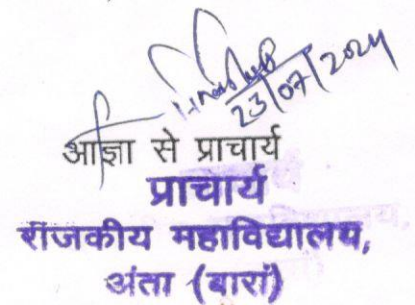 23/07/2024
आज्ञा से प्राचार्य
प्राचार्य
राजकीय महाविद्यालय,
अंता (बारां)